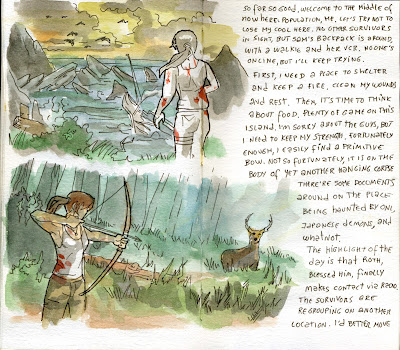 SO FAR SO GOOD. WELCOME TO THE MIDDLE OF
NOWHERE. POPULATION, ME. LET'S TRY NOT TO
LOSE MY COOL HERE. NO OTHER SURVIVORS
IN SIGHT, BUT SAM'S BACKPACK IS AROUND,
WITH A WALKIE AND HER VCR. NOONE'S
ONLINE, BUT I'LL KEEP TRYING.
FIRST, I NEED A PLACE TO SHELTER
AND KEEP A FIRE, CLEAN MY WOUNDS
AND REST. THEN, IT'S TIME TO THINK
ABOUT FOOD. PLENTY OF GAME ON THIS
ISLAND. I'M SORRY ABOUT THE GUYS, BUT
I NEED TO KEEP MY STRENGTH. FORTUNATELY
ENOUGH, I EASILY FIND A PRIMITIVE
BOW. NOT SO FORTUNATELY, IT IS ON THE
BODY OF YET ANOTHER HANGING CORPSE
THERE'RE SOME DOCUMENTS
AROUND ON THE PLACE
BEING HAUNTED BY ONI,
JAPANESE DEMONS, AND
WHATNOT.
THE HIGHLIGHT OF THE
DAY IS THAT ROTH,
BLESSED HIM, FINALLY
MAKES CONTACT VIA RADIO.
THE SURVIVORS ARE
REGROUPING ON ANOTHER
LOCATION. I'D BETTER MOVE